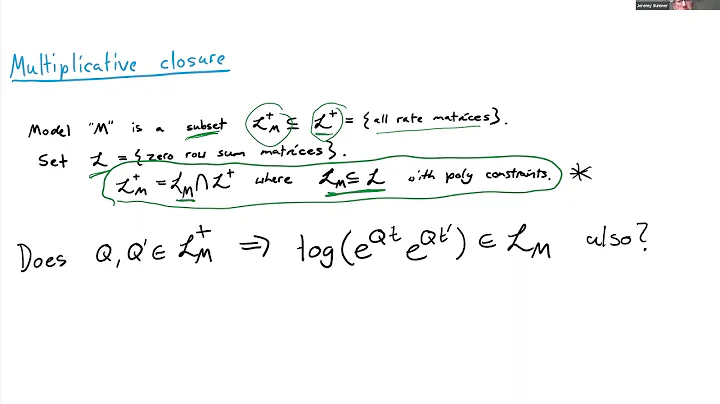 Jeremy Sumner
Multiplicative closure
Model "M" is a subset ℒ_M^+ ⊆ ℒ^+ = {all rate matrices}.
Set ℒ = {zero row sum matrices}.
ℒ_M^+ = ℒ_M ∩ ℒ^+ where ℒ_M ⊆ ℒ with poly constraints. *
Does Q, Q' ∈ ℒ_M^+ ⇒ log(e^{Qt} e^{Qt'}) ∈ ℒ_M also?